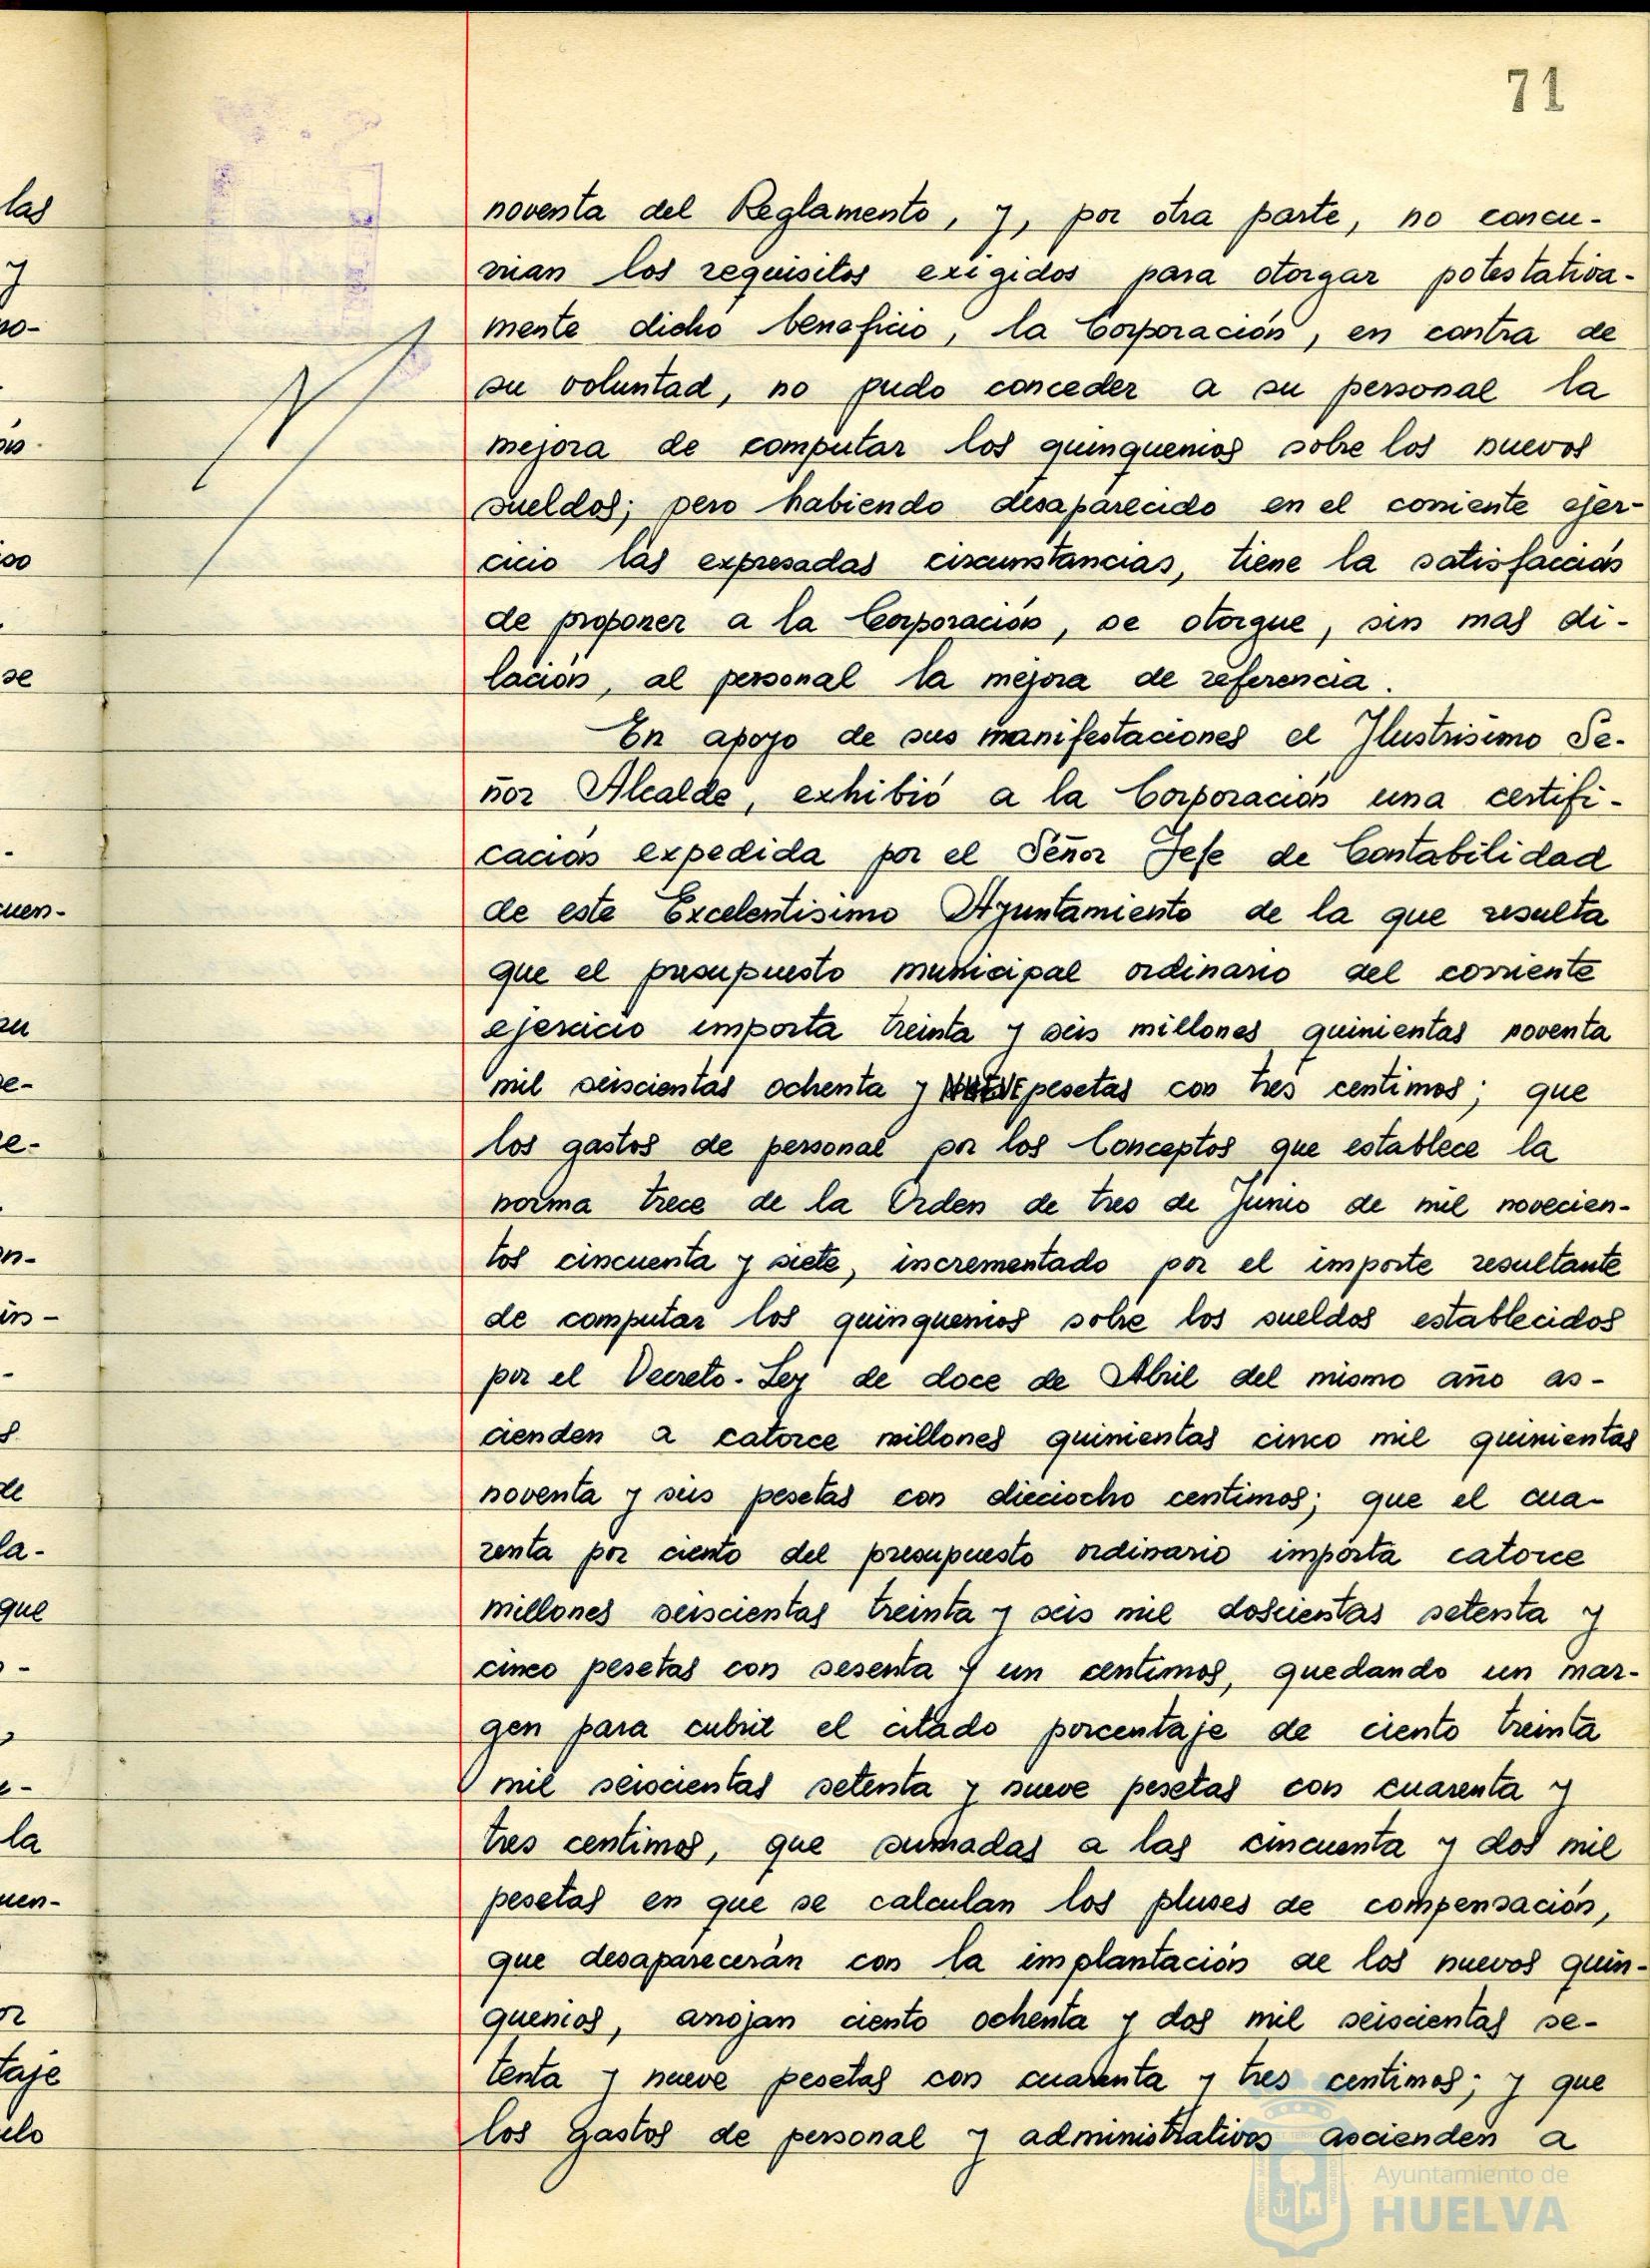 71
noventa del Reglamento, y, por otra parte, no concu-
rrian los requisitos exigidos para otorgar potestativa-
mente dicho beneficio, la Corporación, en contra de
su voluntad, no pudo conceder a su personal la
mejora de computar los quinquenios sobre los nuevos
sueldos; pero habiendo desaparecido en el corriente ejer-
cicio las expresadas circunstancias, tiene la satisfacción
de proponer a la Corporación, se otorgue, sin mas di-
lación, al personal la mejora de referencia.
En apoyo de sus manifestaciones el Ilustrisimo Se-
ñor Alcalde, exhibió a la Corporación una certifi-
cación expedida por el Señor Jefe de Contabilidad
de este Excelentisimo Ayuntamiento de la que resulta
que el presupuesto municipal ordinario del corriente
ejercicio importa treinta y seis millones quinientas noventa
mil seiscientas ochenta y NUEVE pesetas con tres centimos; que
los gastos de personal por los Conceptos que establece la
norma trece de la Orden de tres de Junio de mil novecien-
tos cincuenta y siete, incrementado por el importe resultante
de computar los quinquenios sobre los sueldos establecidos
por el Decreto-Ley de doce de Abril del mismo año as-
cienden a catorce millones quinientas cinco mil quinientas
noventa y seis pesetas con dieciocho centimos; que el cua-
renta por ciento del presupuesto ordinario importa catorce
millones seiscientas treinta y seis mil doscientas setenta y
cinco pesetas con sesenta y un centimos, quedando un mar-
gen para cubrir el citado porcentaje de ciento treinta
mil seiscientas setenta y nueve pesetas con cuarenta y
tres centimos, que sumadas a las cincuenta y dos mil
pesetas en que se calculan los pluses de compensación,
que desaparecerán con la implantación de los nuevos quin-
quenios, arrojan ciento ochenta y dos mil seiscientas se-
tenta y nueve pesetas con cuarenta y tres centimos; y que
los gastos de personal y administrativos ascienden a
Ayuntamiento de
HUELVA
las
y
no-
se
cuen-
que
la
taje